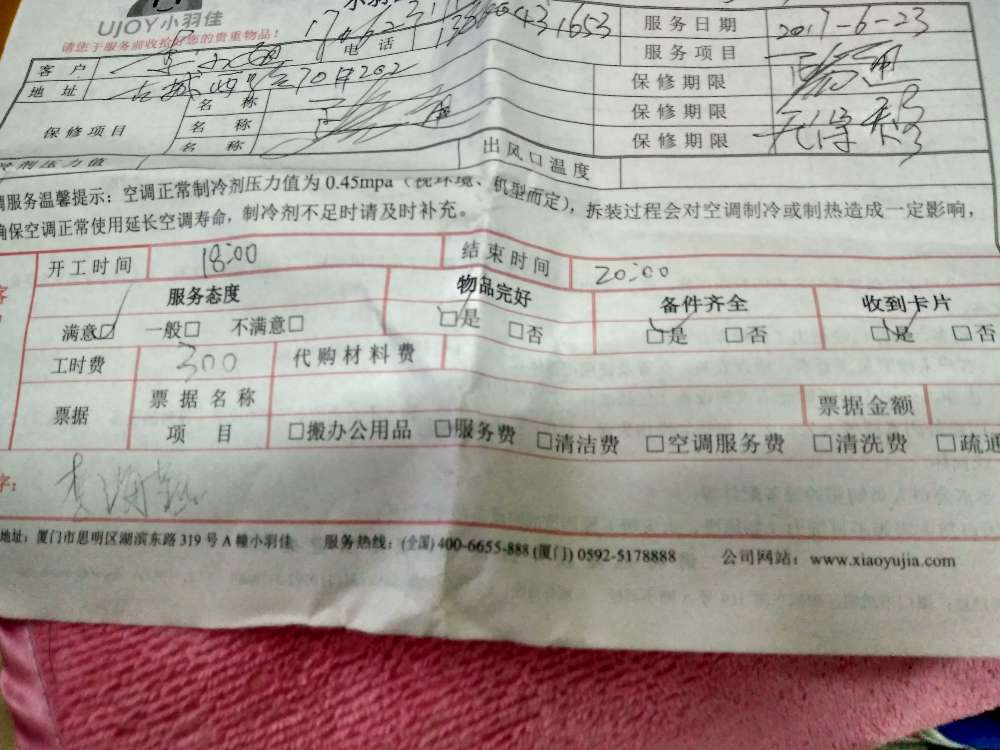 UJOY小羽佳
请您于服务前收拾好您的贵重物品!
客户 电话 服务日期 2017-6-23
地址 服务项目
保修项目 名称 保修期限
名称 保修期限
名称 保修期限
剂压力值 出风口温度
调服务温馨提示:空调正常制冷剂压力值为0.45mpa(视环境、机型而定),拆装过程会对空调制冷或制热造成一定影响,
确保空调正常使用延长空调寿命,制冷剂不足时请及时补充。
开工时间 18:00 结束时间 20:00
服务态度 物品完好 备件齐全 收到卡片
满意☑ 一般□ 不满意□ ☑是 □否 ☑是 □否 ☑是 □否
工时费 300 代购材料费
票据 票据名称 票据金额
项目 □搬办公用品 □服务费 □清洁费 □空调服务费 □清洗费 □疏通
字:
地址:厦门市思明区湖滨东路319号A幢小羽佳 服务热线:(全国)400-6655-888(厦门)0592-5178888 公司网站:www.xiaoyujia.com